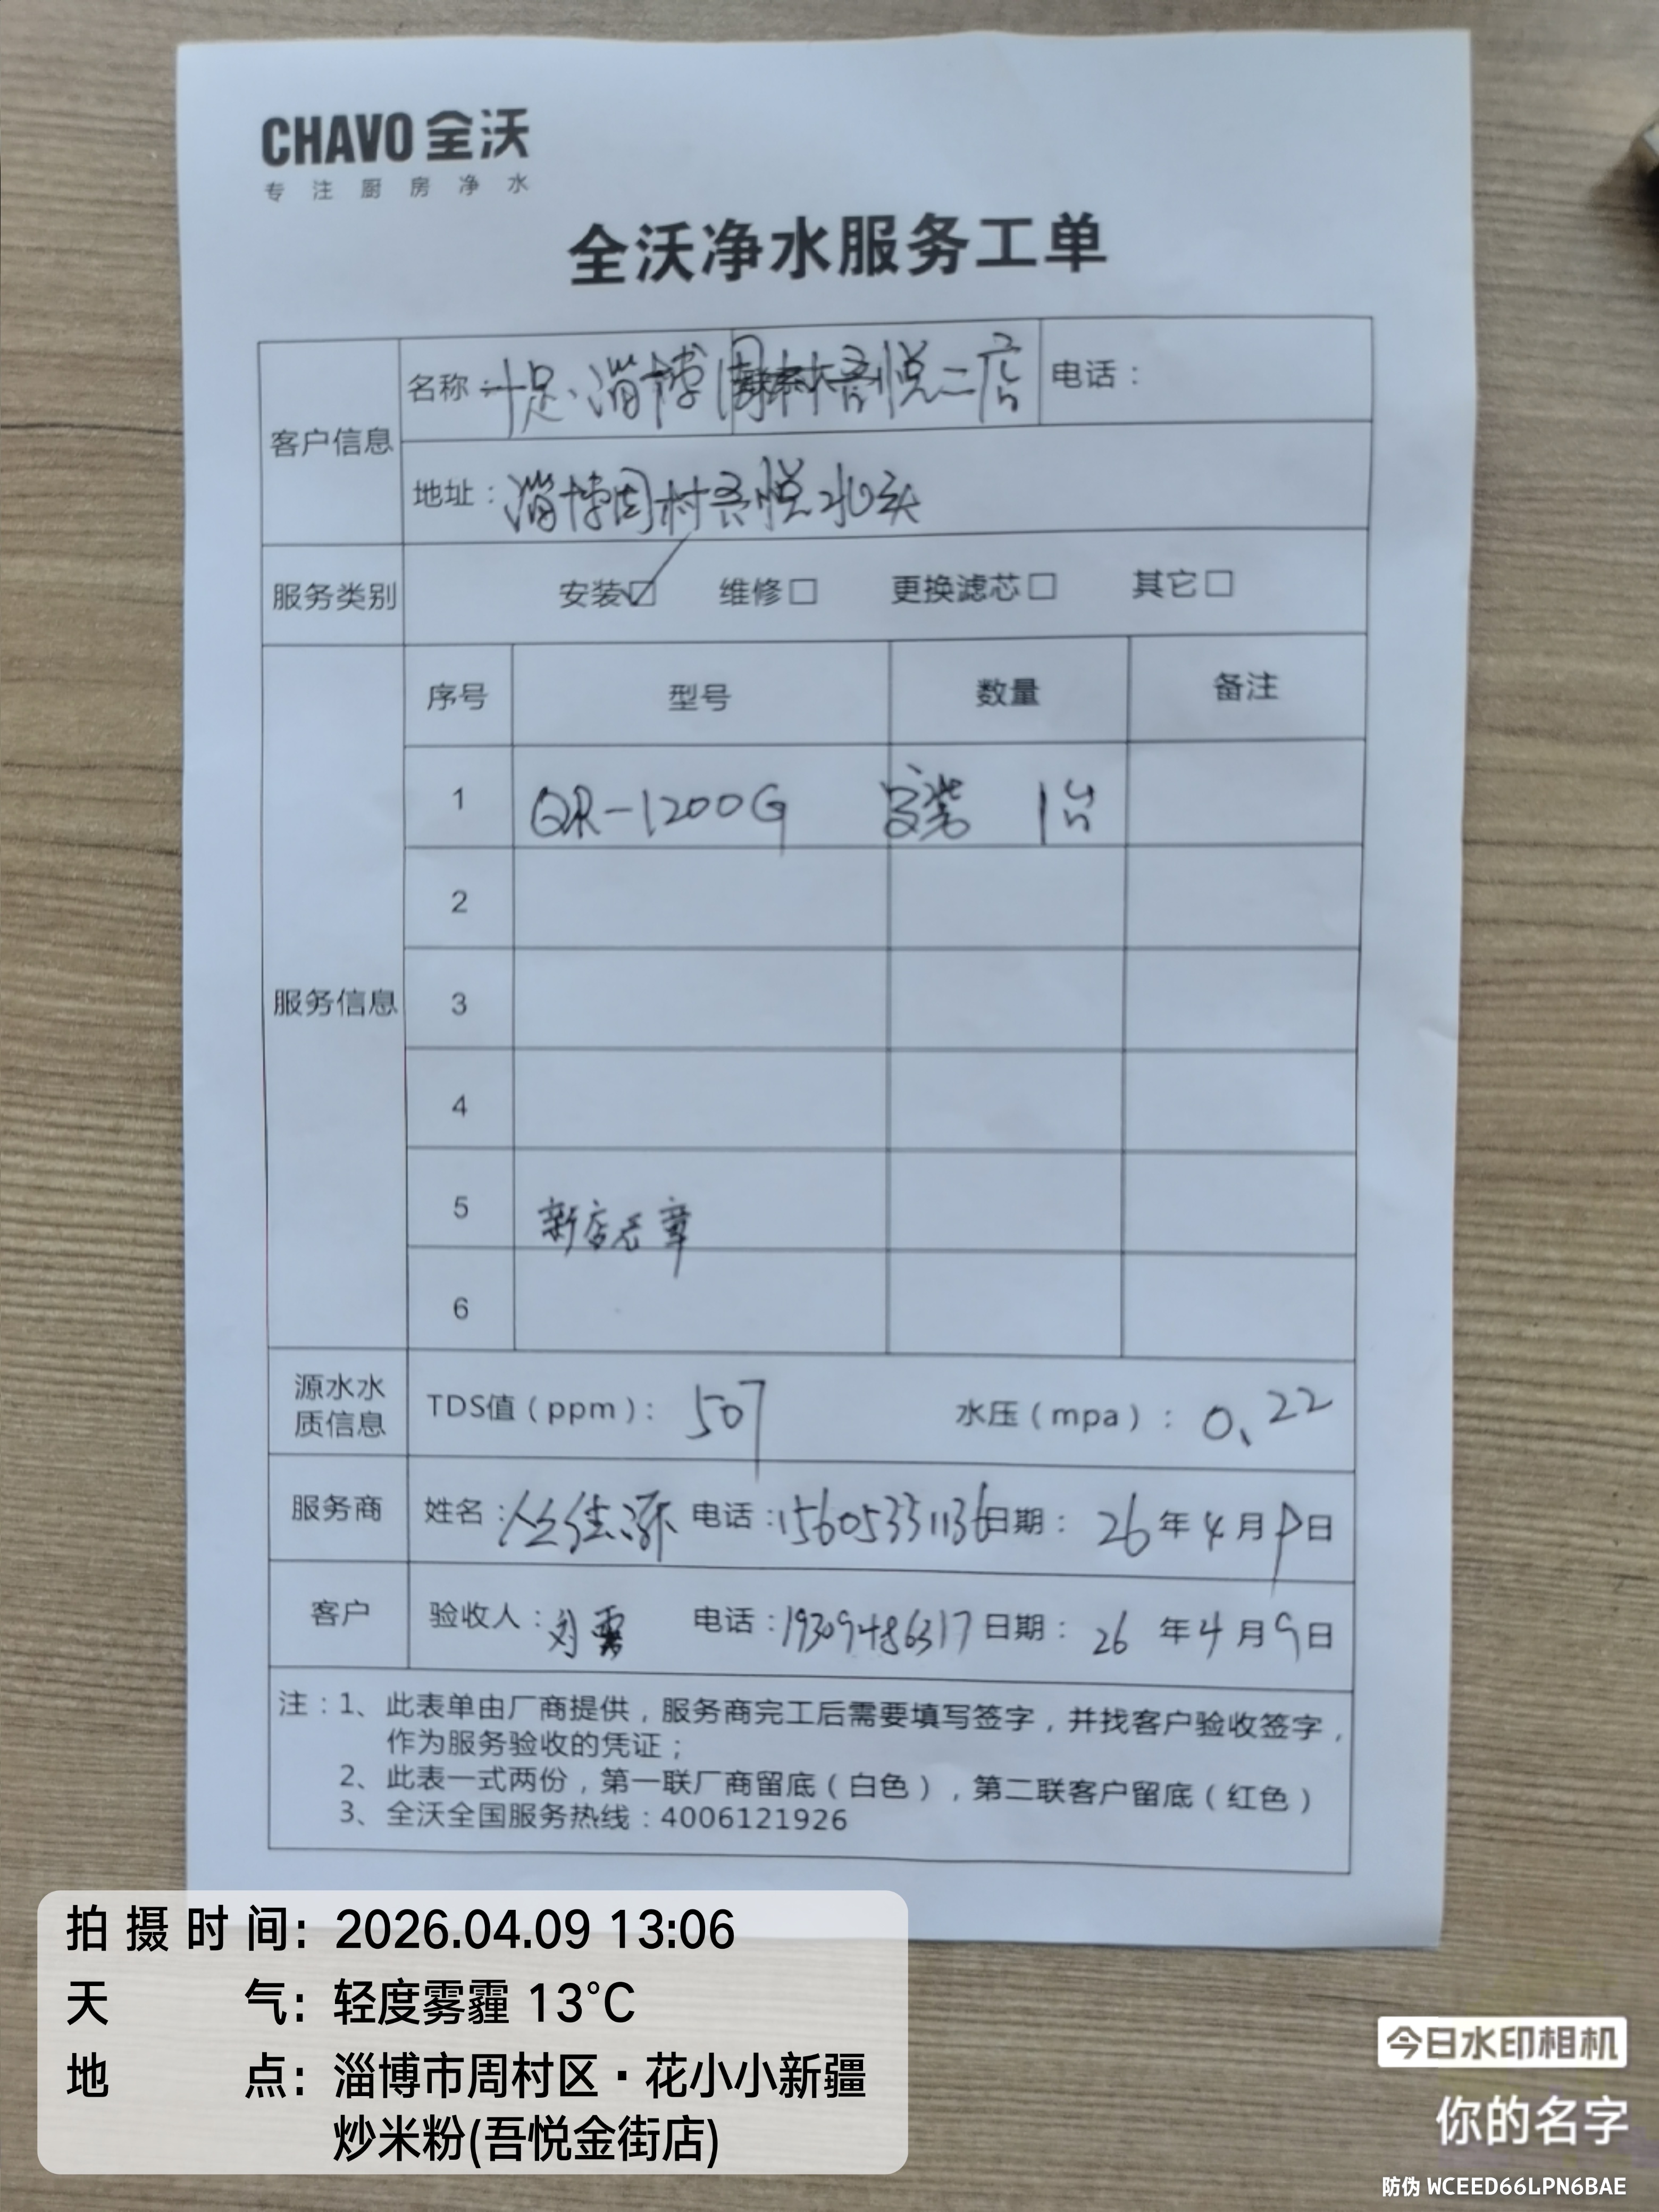 CHAVO 全沃
专注厨房净水
全沃净水服务工单
客户信息
名称：十足、淄博周村吾悦二店 电话：
地址：淄博周村吾悦水头
服务类别 安装☑ 维修□ 更换滤芯□ 其它□
服务信息
序号 型号 数量 备注
1 QR-1200G 安装 1台
2
3
4
5 新店无章
6
源水水质信息 TDS值（ppm）： 507 水压（mpa）： 0.22
服务商 姓名： 电话：15605331136 日期： 26年4月9日
客户 验收人：刘 电话：19309486317 日期： 26年4月9日
注：1、此表单由厂商提供，服务商完工后需要填写签字，并找客户验收签字，
作为服务验收的凭证；
2、此表一式两份，第一联厂商留底（白色），第二联客户留底（红色）
3、全沃全国服务热线：4006121926
拍摄时间：2026.04.09 13:06
天气：轻度雾霾 13°C
地点：淄博市周村区·花小小新疆
炒米粉(吾悦金街店)
今日水印相机
你的名字
防伪 WCEED66LPN6BAE